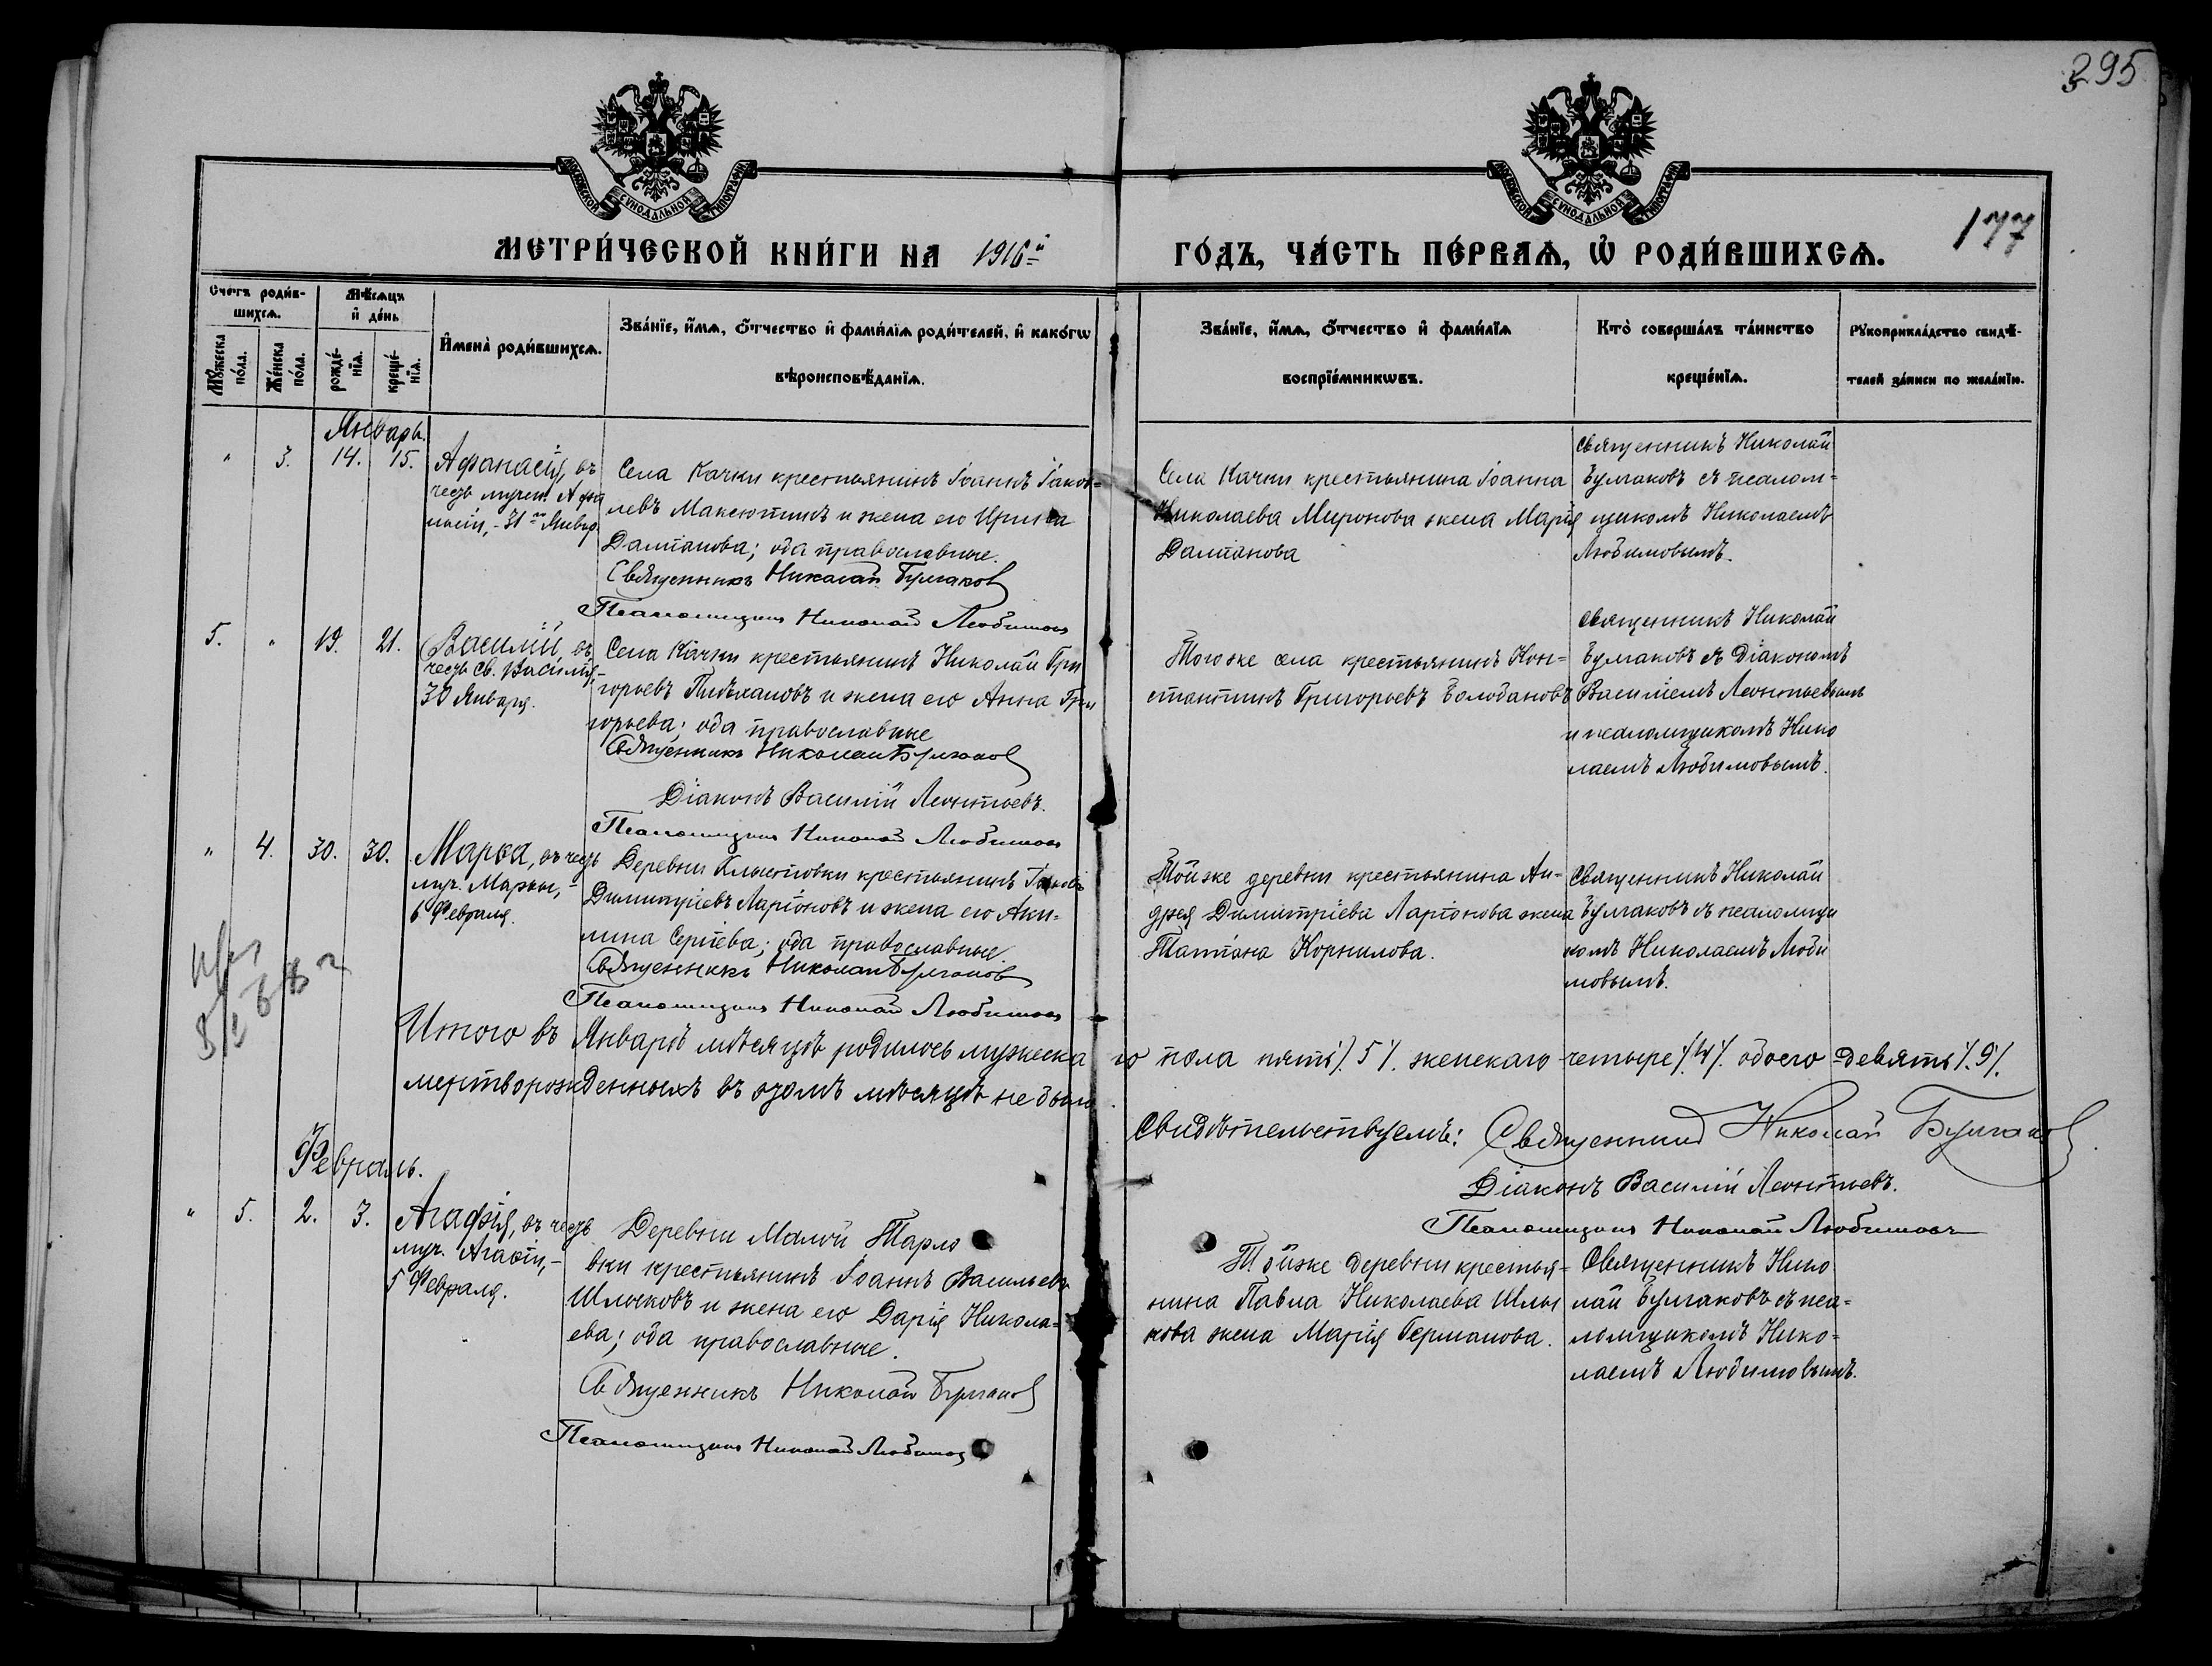 295
177
МОСКОВСКОЙ СѴНОДАЛЬНОЙ ТИПОГРАФІИ
МОСКОВСКОЙ СѴНОДАЛЬНОЙ ТИПОГРАФІИ
МЕТРИ́ЧЕСКОЙ КНИ́ГИ НА 1916й
ГО́ДЪ, ЧА́СТЬ ПЕ́РВАѦ, Ѽ РОДИ́ВШИХСѦ.
Счетъ роди́в-
шихсѧ.
Мѣ́сяцъ
и҆ де́нь
Мꙋ́жеска
по́ла.
Же́нска
по́ла.
рожде́-
нїѧ.
креще́-
нїѧ.
И҆мена̀ роди́вшихсѧ.
Зва́нїе, и҆́мѧ, ѻ҆́тчество и҆ фами́лїѧ роди́телей, и҆ како́гѡ
вѣроисповѣ́данїѧ.
Зва́нїе, и҆́мѧ, ѻ҆́тчество и҆ фами́лїѧ
воспрїе́мникѡвъ.
Кто̀ соверша́лъ та́инство
креще́нїѧ.
Рꙋкоприкла́дство свидѣ́-
телей за́писи по жела́нїю.
Январь.
" 3. 14. 15.
Афанасія, въ
честь мучен. Афа
насіи, - 31го Январ.
Села Качки крестьянинъ Іоаннъ Іаков=
левъ Максютинъ и жена его Ирина
Далтанова; оба православные.
Священникъ Николай Булгаков
Псаломщикъ Николай Любимовъ
Села Качки крестьянина Іоанна
Николаева Миронова жена Марія
Далтанова
Священникъ Николай
Булгаковъ съ псалом=
щикомъ Николаемъ
Любимовымъ.
5. " 19. 21.
Василій, въ
честь св. Василія,
30 Января.
Села Качки крестьянинъ Николай Гри
горьевъ и жена его Анна Гри
горьева; оба православные
Священникъ Николай Булгаков
Діаконъ Василій Леонтьевъ.
Псаломщикъ Николай Любимовъ
Тогоже села крестьянинъ Кон=
стантинъ Григорьевъ Болобановъ
Священникъ Николай
Булгаковъ съ Діакономъ
Василіемъ Леонтьевымъ
и псаломщикомъ Нико
лаемъ Любимовымъ.
" 4. 30. 30.
Марѳа, въ честь
муч. Марѳы, -
6 Февраля.
Деревни крестьянинъ
Димитріевъ Ларіоновъ и жена его Аки-
лина Сергіева; оба православные.
Священникъ Николай Булгаков
Псаломщикъ Николай Любимовъ
Тойже деревни крестьянина Ан-
дрея Димитріева Ларіонова жена
Татіана Корнилова.
Священникъ Николай
Булгаковъ съ псаломщи
комъ Николаемъ Люби
мовымъ.
Итого въ Январѣ мѣсяцѣ родилось мужеска
го пола пять /. 5 /. женскаго четыре /. 4 /. обоего девять /. 9 /.
мертворожденныхъ въ этомъ мѣсяцѣ не было.
Свидѣтельствуемъ: Священникъ Николай Булгаков
Діаконъ Василій Леонтьевъ.
Псаломщикъ Николай Любимовъ
Февраль.
" 5. 2. 3.
Агафія, въ честь
муч. Агаѳіи, -
5 Февраля.
Деревни Малой Тарло
вки крестьянинъ Іоаннъ Васильевъ
Шлыковъ и жена его Дарія Никола=
ева; оба православные.
Священникъ Николай Булгаков
Псаломщикъ Николай Любимов
Тойже деревни крестья=
нина Павла Николаева Шлы
кова жена Марія Германова.
Священникъ Нико
лай Булгаковъ съ пса=
ломщикомъ Нико=
лаемъ Любимовымъ.